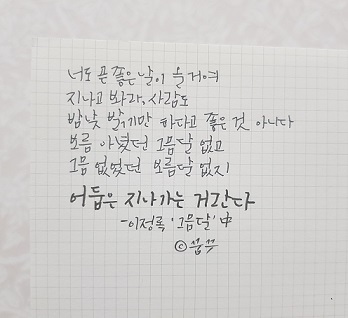 너도 곧 좋은 날이 올 거여
지나고 봐라, 사람도
밤낮 밝기만 하다고 좋은 것 아니다
보름 아녔던 그믐달 없고
그믐 없었던 보름달 없지
어둠은 지나가는 거란다
-이정록 '그믐달' 中